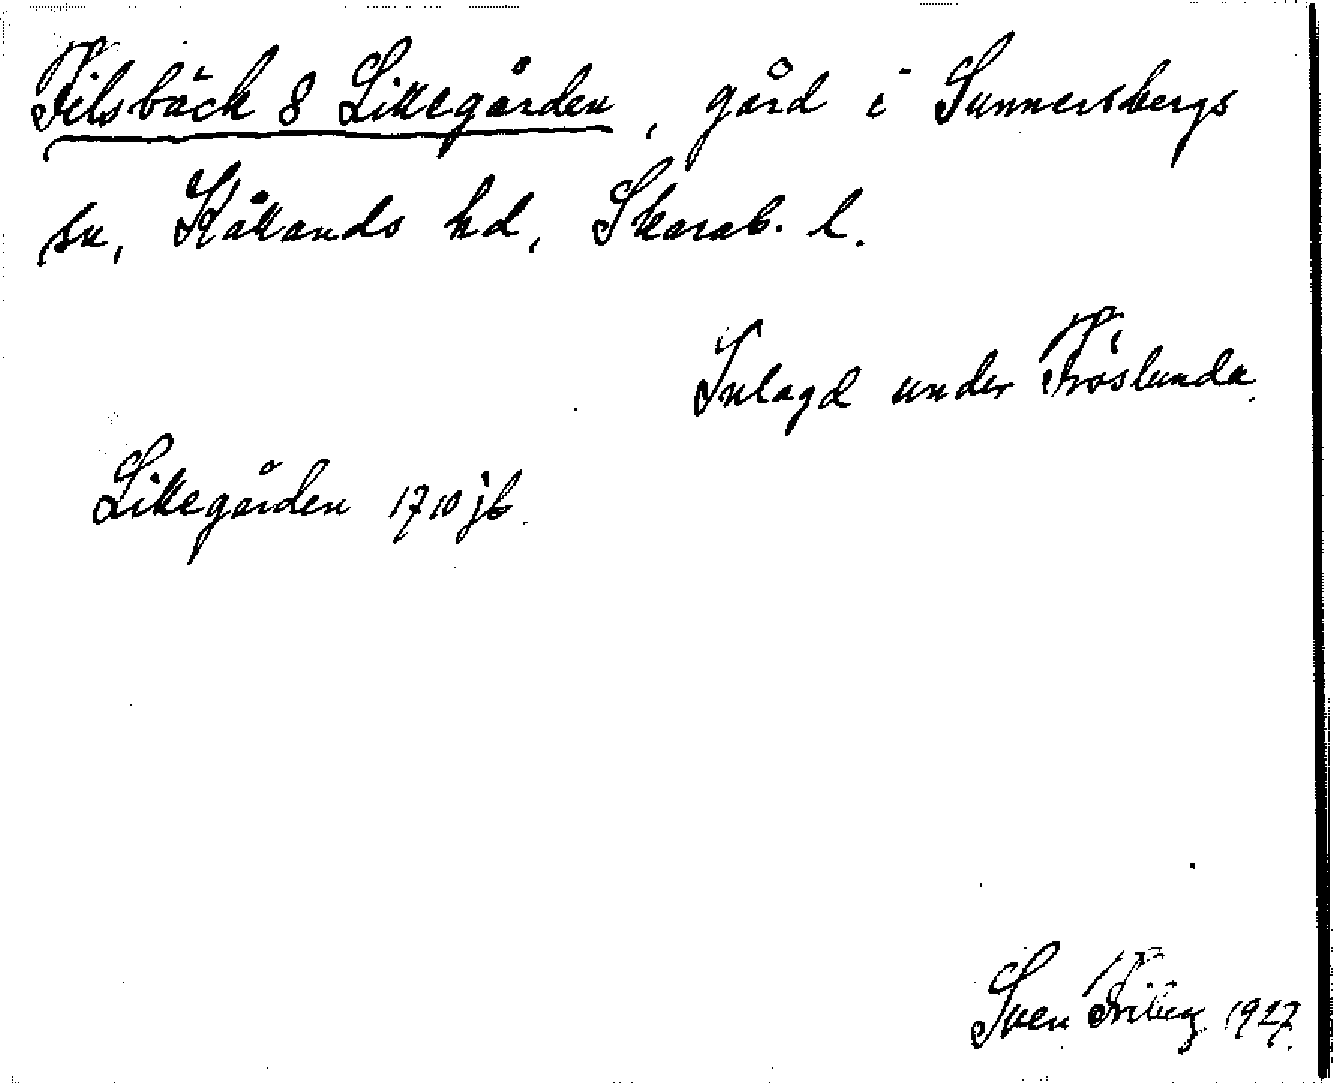 Filsbäck 8 Lillegården, gård i Sunnersbergs
sn, Kållands hd, Skarab. l.
Inlagd under Fröslunda.
Lillegården 1710 jb.
Sven Friberg 1927.